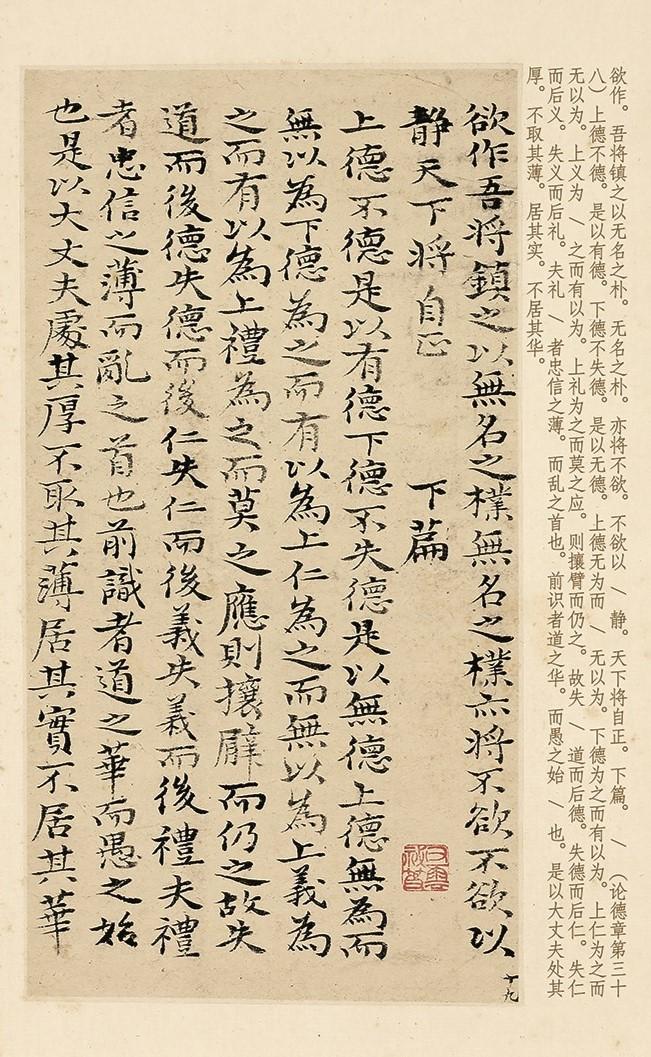 欲作。吾将镇之以无名之朴。无名之朴。亦将不欲。不欲以 / 静。天下将自正。下篇。 / (论德章第三十
八)上德不德。是以有德。下德不失德。是以无德。上德无为而 / 无以为。下德为之而有以为。上仁为之而
无以为。上义为 / 之而有以为。上礼为之而莫之应。则攘臂而仍之。故失 / 道而后德。失德而后仁。失仁
而后义。失义而后礼。夫礼 / 者忠信之薄。而乱之首也。前识者道之华。而愚之始 / 也。是以大丈夫处其
厚。不取其薄。居其实。不居其华。
欲作吾将鎮之以無名之樸無名之樸亦将不欲不欲以
静天下将自正 下篇
上德不德是以有德下德不失德是以無德上德無為而
無以為下德為之而有以為上仁為之而無以為上義為
之而有以為上禮為之而莫之應則攘臂而仍之故失
道而後德失德而後仁失仁而後義失義而後禮夫禮
者忠信之薄而亂之首也前識者道之華而愚之始
也是以大丈夫處其厚不取其薄居其實不居其華
十九